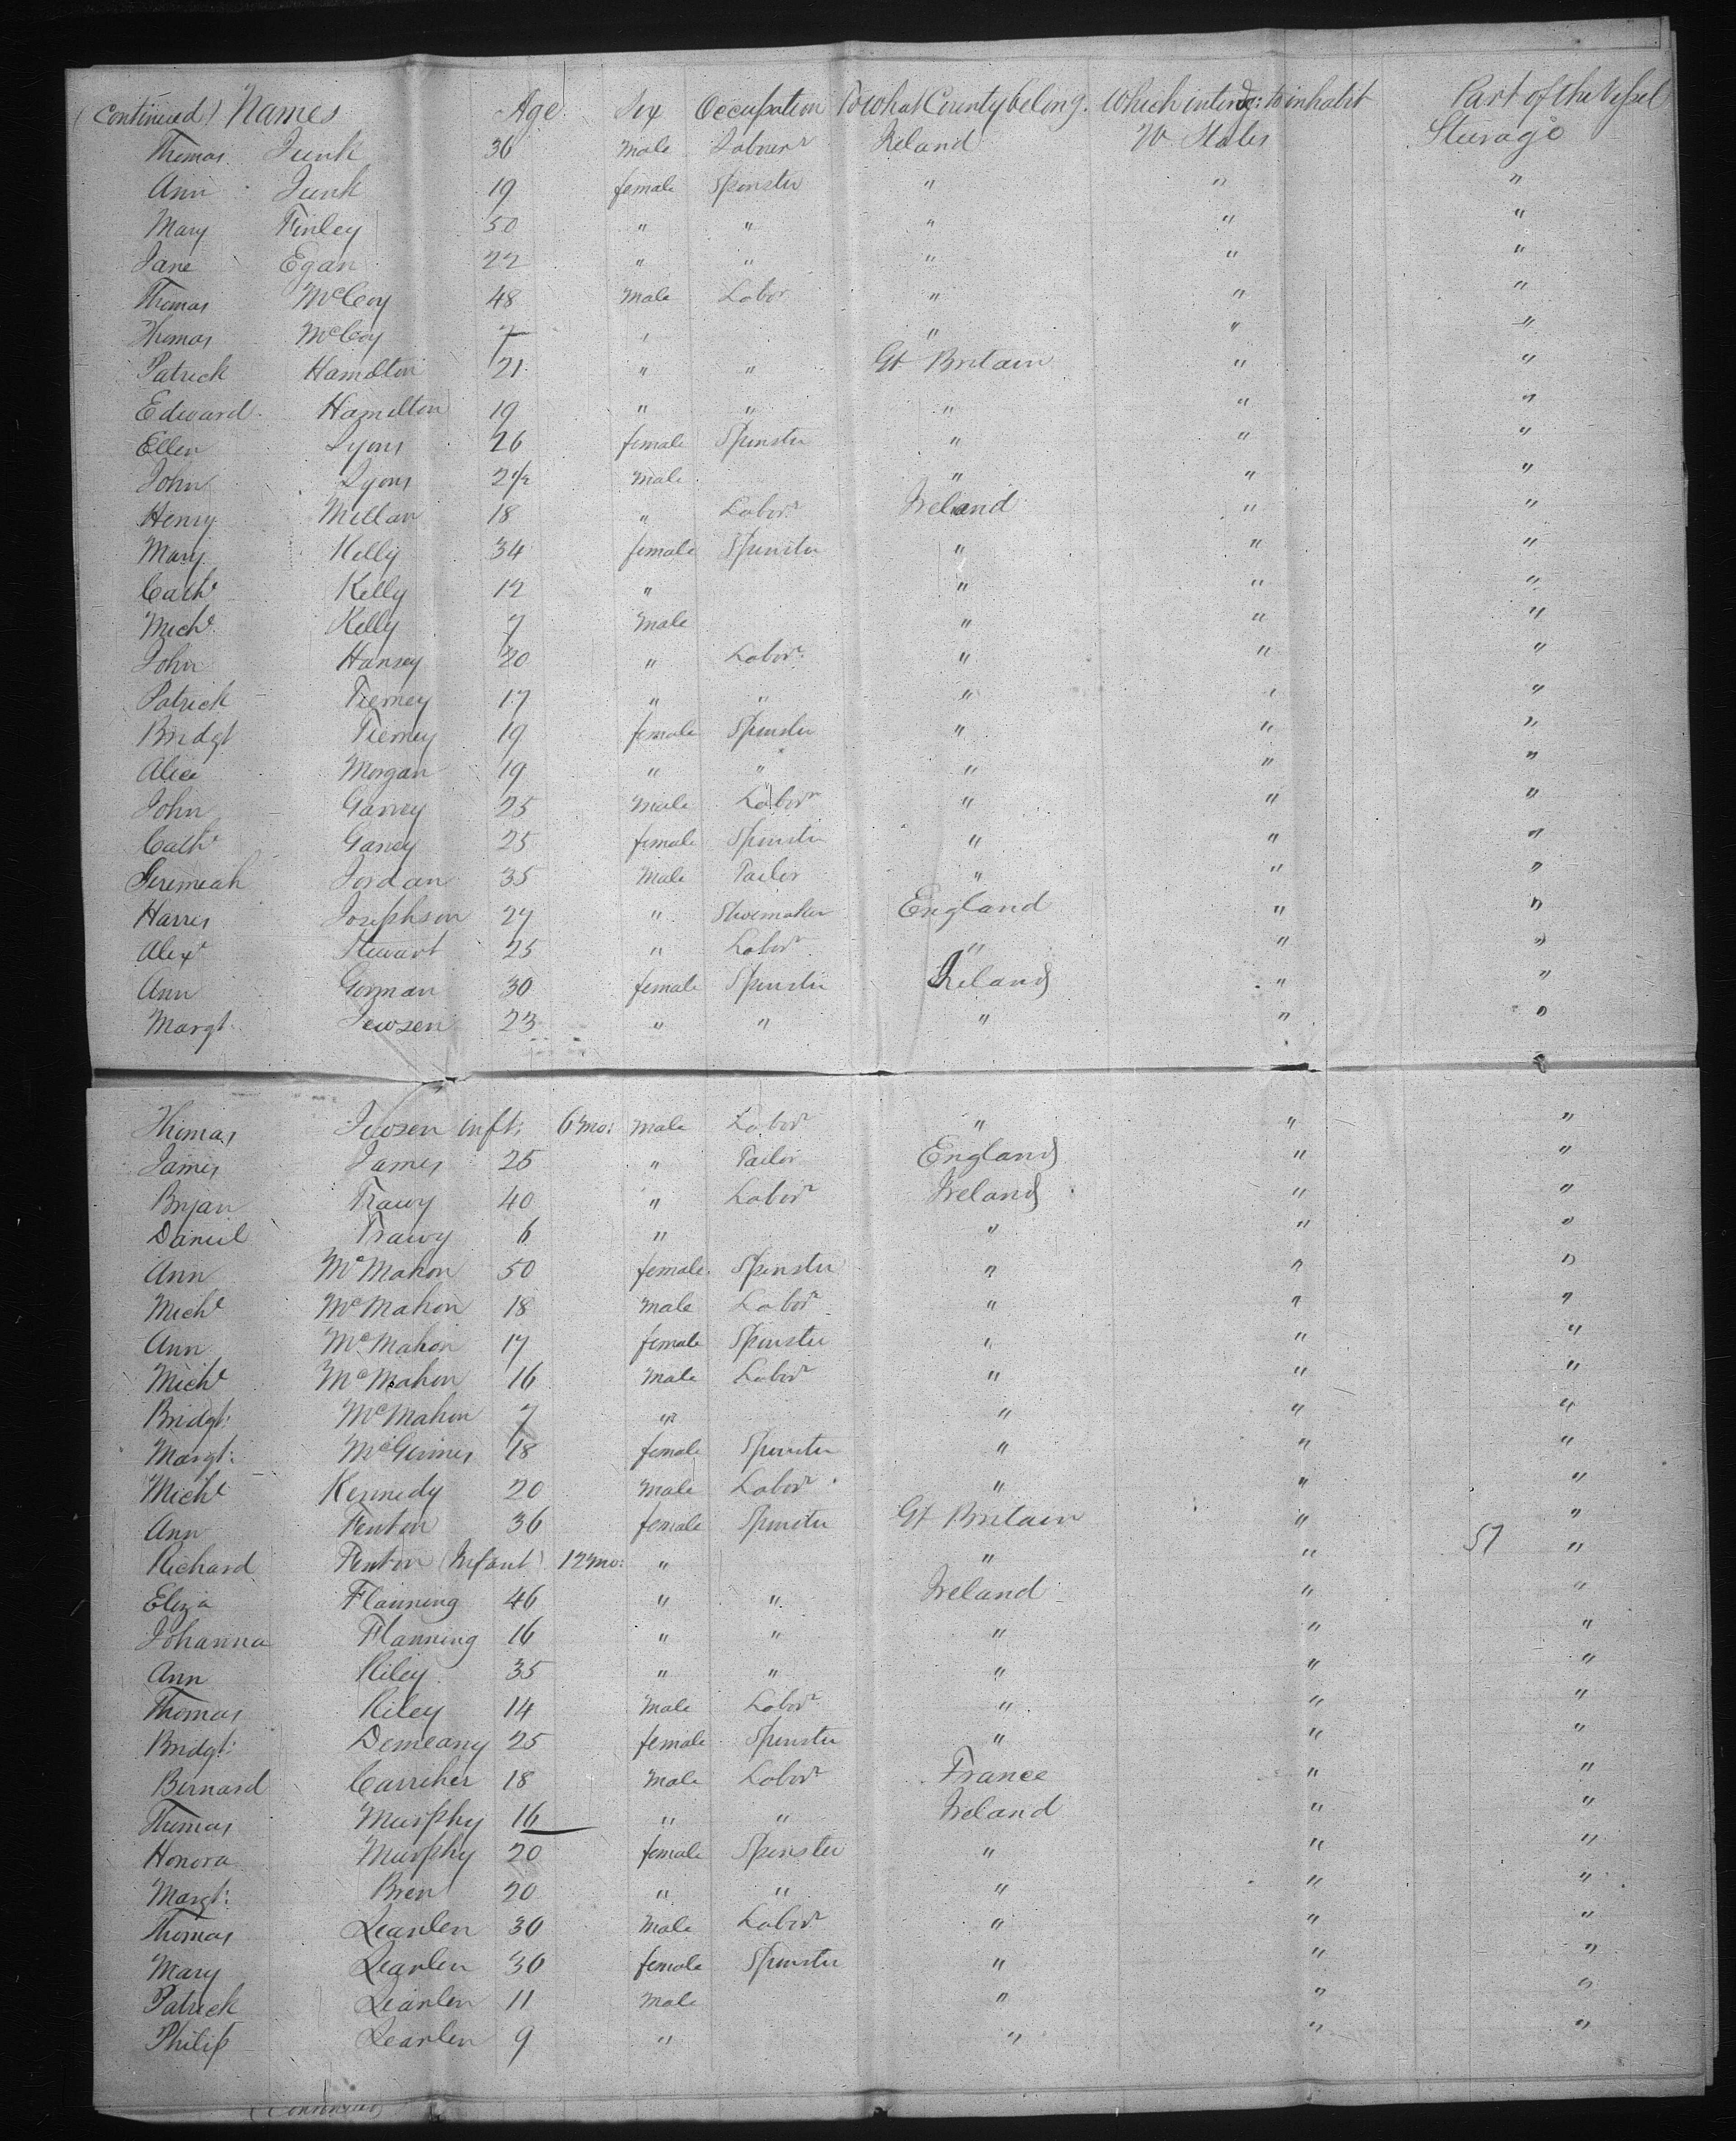 (Continued) Names Age Sex Occupation To what County belong. Which intend: to inhabit Part of the Vessel
Thomas Junk 36 Male Laborer Ireland U States Steurage
Ann Junk 19 female Spinster " " "
Mary Finley 50 " " " " "
Jane Egan 22 " " " " "
Thomas McCoy 48 Male Labor " " "
Thomas McCoy 7 " " " "
Patrick Hamilton 21 " " Gt Britain " "
Edward Hamilton 19 " " " " "
Ellen Lyons 26 female Spinster " " "
John Lyons 2½ Male " " "
Henry Millar 18 " Labor Ireland " "
Mary Kelly 34 female Spinster " " "
Cathe Kelly 12 " " " "
Michl Kelly 7 Male " " "
John Hansey 20 " Labor " " "
Patrick Tierney 17 " " " " "
Bridgt Tierney 19 female Spinster " " "
Alice Morgan 19 " " " " "
John Garvey 25 Male Labor " " "
Cathe Garvey 25 female Spinster " " "
Jeremeah Jordan 35 Male Tailor " " "
Harris Josephson 27 " Shoemaker England " "
Alexr Stewart 25 " Labor " " "
Ann Gorman 30 female Spinster Ireland " "
Margt Jewsen 23 " " " " "
Thomas Jewsen inft: 6 mo: Male Labor " " "
James James 25 " Tailor England " "
Bryan Trawy 40 " Labor Ireland " "
Daniel Trawy 6 " " " "
Ann McMahon 50 female Spinster " " "
Michl McMahon 18 Male Labor " " "
Ann McMahon 17 female Spinster " " "
Michl McMahon 16 Male Labor " " "
Bridgt: McMahon 7 " " " "
Margt: McGinnes 18 female Spinster " " "
Michl Kennedy 20 Male Labor " " "
Ann Fenton 36 female Spinster Gt Britain " "
Richard Fenton (Infant) 12 mo: " " " 51 "
Eliza Flanning 46 " " Ireland " "
Johanna Flanning 16 " " " " "
Ann Riley 35 " " " " "
Thomas Riley 14 Male Labor " " "
Bridgt: Demeany 25 female Spinster " " "
Bernard Carriher 18 Male Labor France " "
Thomas Murphy 16 " " Ireland " "
Honora Murphy 20 female Spinster " " "
Margt: Bren 20 " " " " "
Thomas Leanlen 30 Male Labor " " "
Mary Leanlen 30 female Spinster " " "
Patrick Leanlen 11 Male " " "
Philip Leanlen 9 " " " "
(Continued)